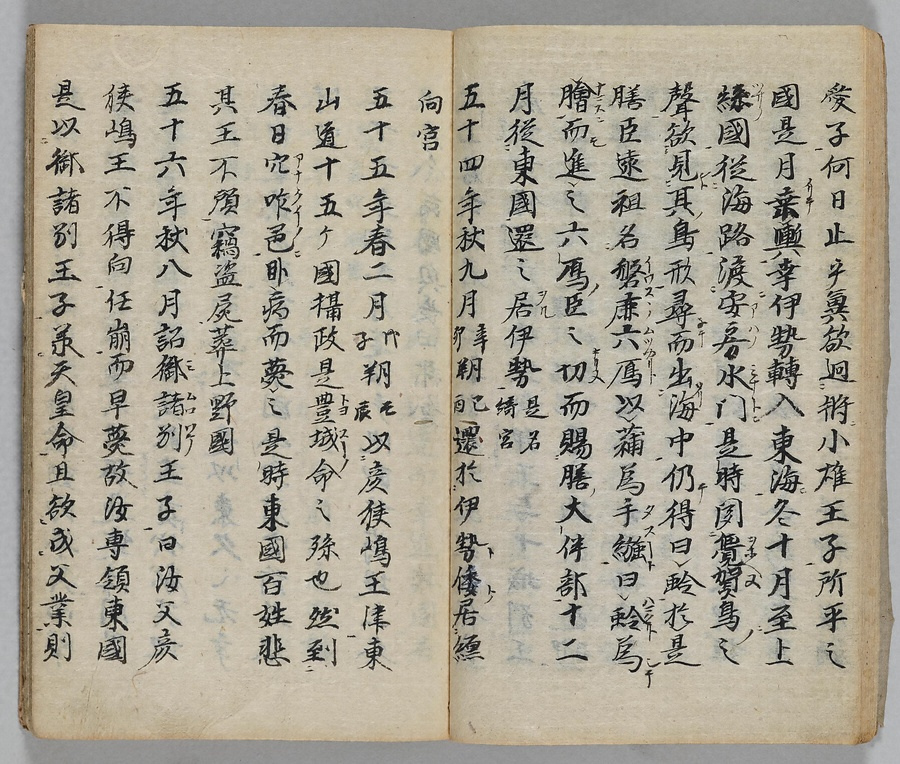 愛子何日止乎冀欲廻將小雄王子所平之
國是月乗輿幸伊勢轉入東海冬十月至上
総國従海路渡安房水門是時聞覺賀鳥之
聲欲見其鳥形尋而出海中仍得白蛤於是
膳臣遠祖名磐鹿六鴈以蒲為手繦白蛤為
膾而進之六鴈臣之切而賜膳大伴部十二
月従東國還之居伊勢是名綺宮
五十四年秋九月辛卯朔己酉還於伊勢倭居纏
向宮
五十五年春二月戊子朔壬辰以彦狭嶋王津東
山道十五ケ國攝政是豊城命之孫也然到
春日穴咋邑臥病而薨之是時東國百姓悲
其王不顔竊盗屍葬上野國
五十六年秋八月詔御諸別王子曰汝父彦
狭嶋王不得向任崩而早薨故汝専領東國
是以御諸別王子羕天皇命且欲成父業則